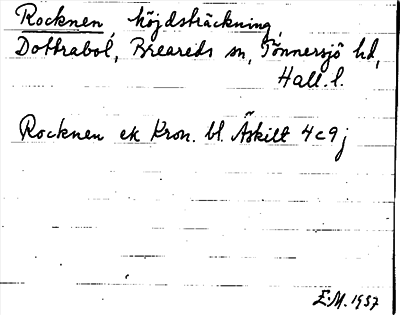 Rocknen, höjdsträckning,
Dottrabol, Breareds sn, Tönnersjö hd,
Hall. l.
Rocknen ek Kron. bl. Äskilt 4c9j
E.M. 1937